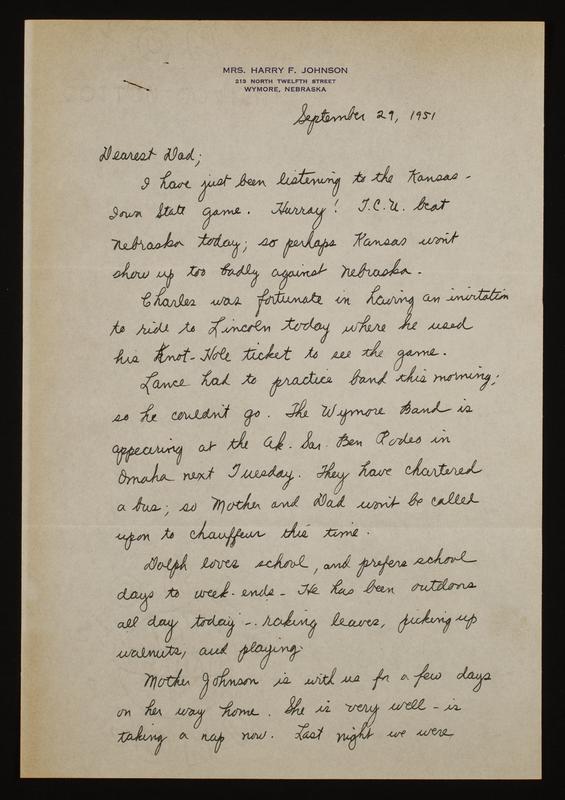 MRS. HARRY F. JOHNSON
213 NORTH TWELFTH STREET
WYMORE, NEBRASKA
September 29, 1951
Dearest Dad;
I have just been listening to the Kansas-
Iowa State game. Hurray! T.C.U. beat
Nebraska today; so perhaps Kansas won't
show up too badly against Nebraska.
Charles was fortunate in having an invitation
to ride to Lincoln today where he used
his Knot-Hole ticket to see the game.
Lance had to practice band this morning;
so he couldn't go. The Wymore Band is
appearing at the Ak. Sar. Ben Rodeo in
Omaha next Tuesday. They have chartered
a bus; so Mother and Dad won't be called
upon to chauffeur this time.
Dolph loves school, and prefers school
days to week-ends - He has been outdoors
all day today -- raking leaves, picking up
walnuts, and playing.
Mother Johnson is with us for a few days
on her way home. She is very well - is
taking a nap now. Last night we were